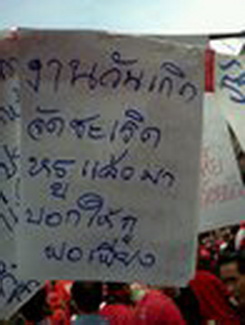 งานวันเกิด
จัดซะเริ่ด
หรูแล้วมา
บอกให้กู
พอเพียง